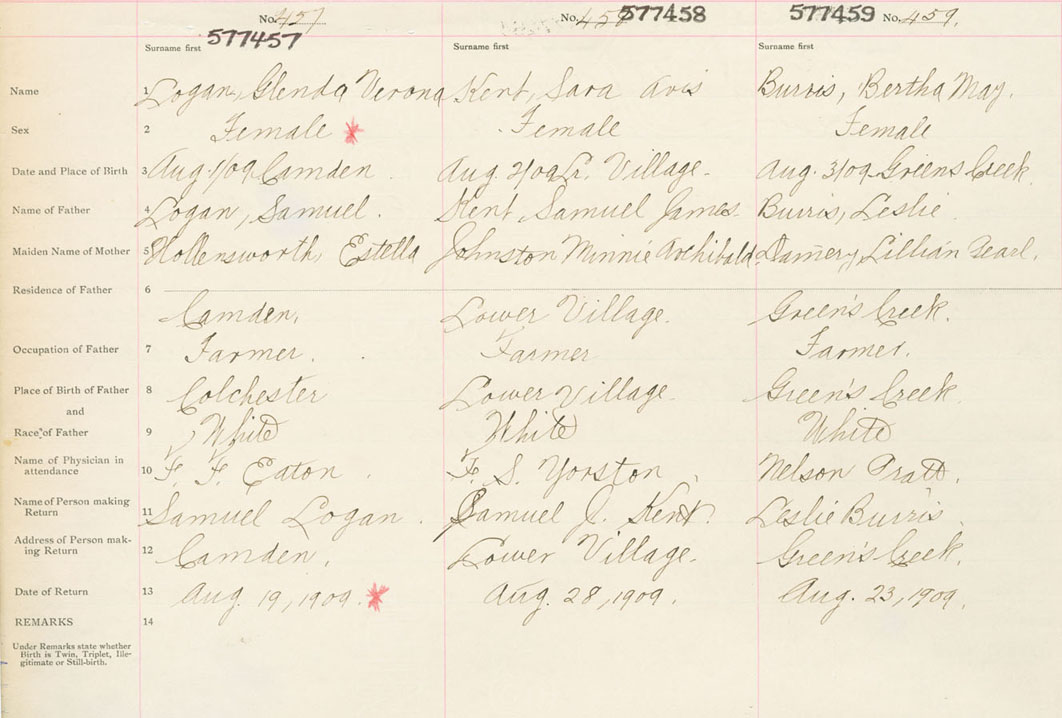 No. 457 No. 458 577458 577459 No. 459.
577457
Surname first Surname first Surname first
Name 1 Logan, Glenda Verona Kent, Sara Avis Burris, Bertha May.
Sex 2 Female Female Female
Date and Place of Birth 3 Aug. 1/09 Camden Aug. 2/09 Lr. Village. Aug. 3/09 Greens Creek
Name of Father 4 Logan, Samuel. Kent, Samuel James. Burris, Leslie.
Maiden Name of Mother 5 Hollensworth, Estella Johnston Minnie Archibald. Damery, Lillian Pearl.
Residence of Father 6 Camden, Lower Village. Green's Creek.
Occupation of Father 7 Farmer. Farmer Farmer.
Place of Birth of Father 8 Colchester Lower Village. Green's Creek.
and
Race of Father 9 White White White
Name of Physician in
attendance 10 F. F. Eaton F. S. Yorston Nelson Pratt.
Name of Person making
Return 11 Samuel Logan. Samuel J. Kent. Leslie Burris
Address of Person mak-
ing Return 12 Camden. Lower Village. Green's Creek.
Date of Return 13 Aug. 19, 1909. Aug. 28, 1909. Aug. 23, 1909.
REMARKS 14
Under Remarks state whether
Birth is Twin, Triplet, Ille-
gitimate or Still-birth.